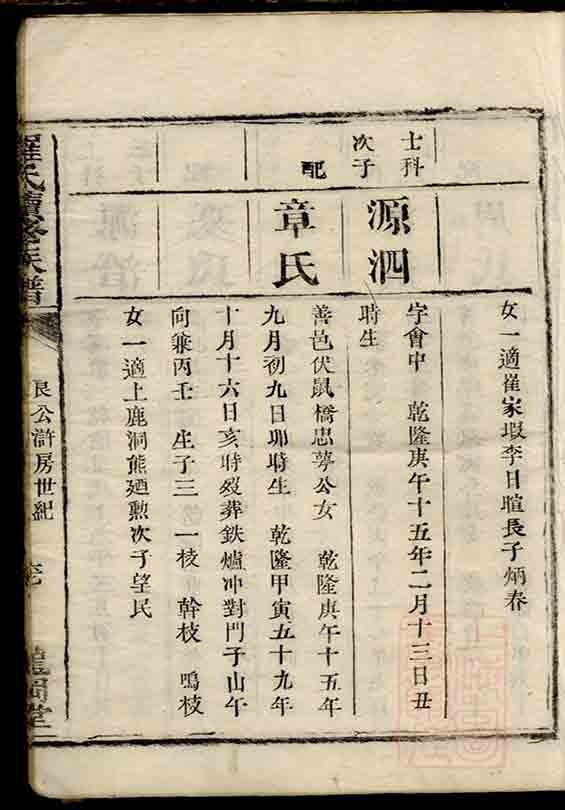 女一適崔家塅李日暄長子炳春
士科
次子
源泗
字會中 乾隆庚午十五年二月十三日丑
時生
配
章氏
善邑伏鼠橋忠夢公女 乾隆庚午十五年
九月初九日卯時生 乾隆甲寅五十九年
十月十六日亥時歿葬鉄爐冲對門子山午
向兼丙壬 生子三 一枝 幹枝 鳴枝
女一適上鹿洞熊廼勲次子望民
羅氏續修族譜
良公滸房世紀